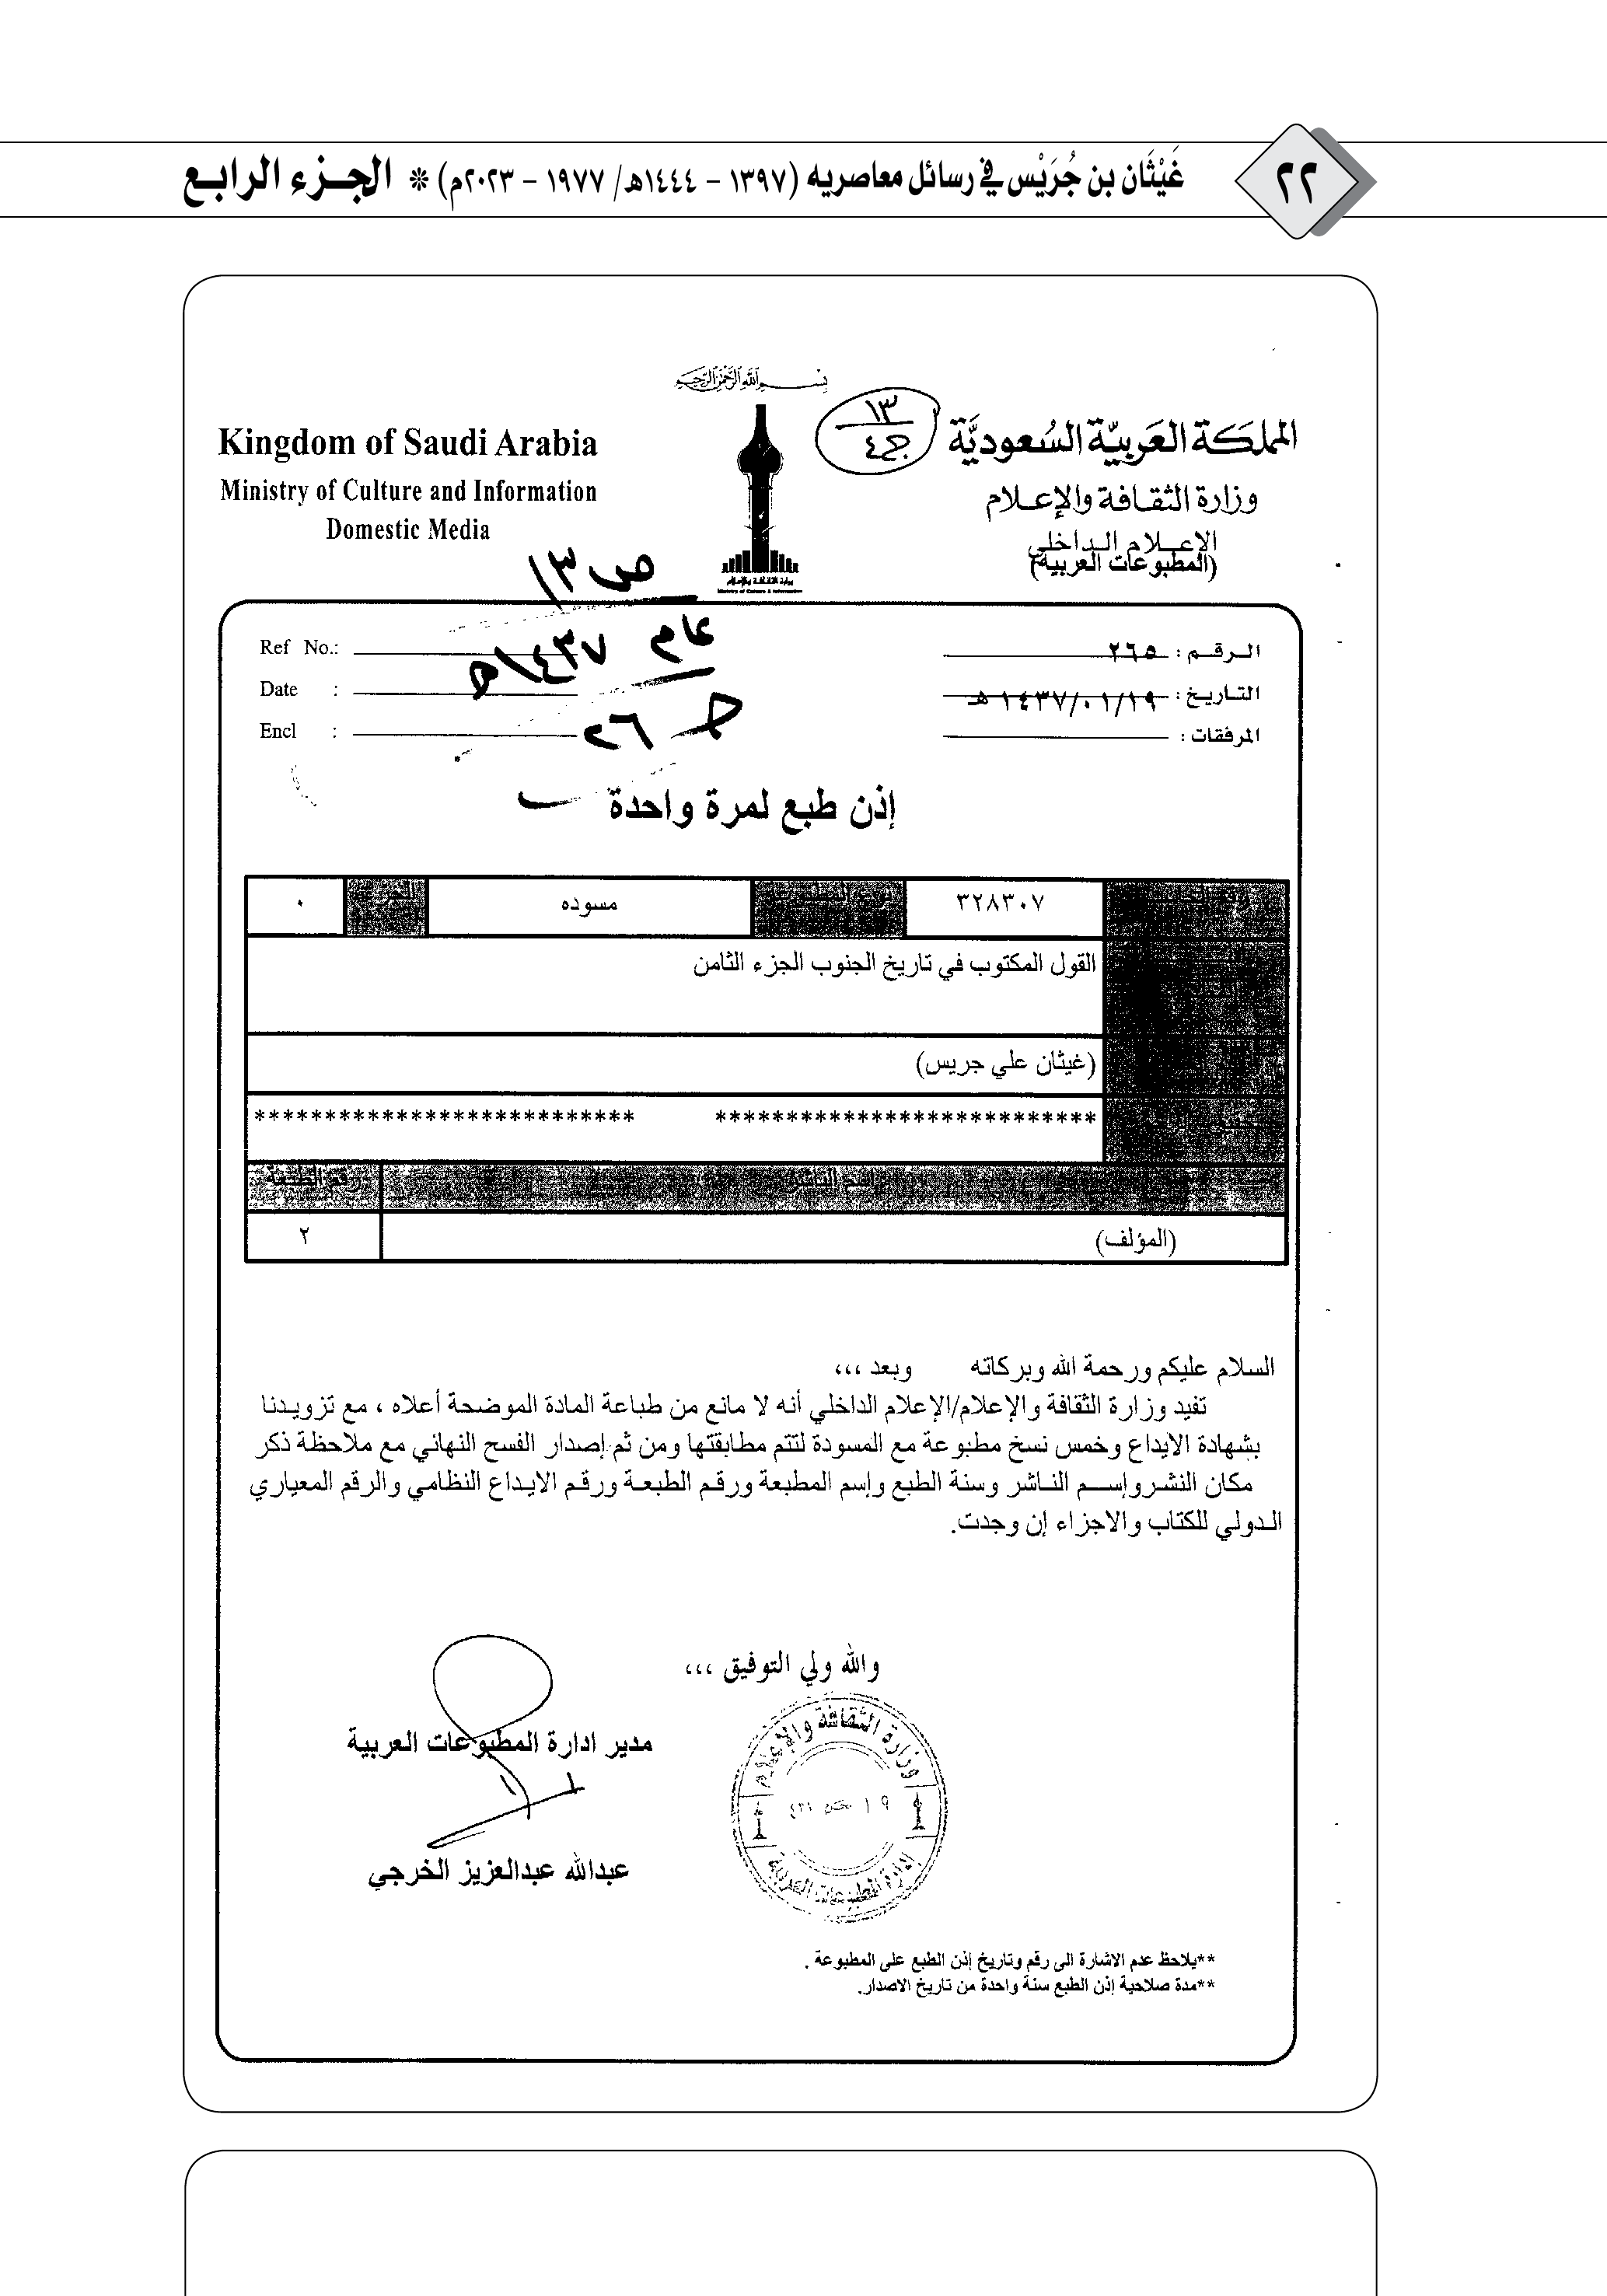 ٢٢
غَيْثَان بن جُرَيْس في رسائل معاصريه (١٣٩٧ - ١٤٤٤هـ/ ١٩٧٧ - ٢٠٢٣م) * الجزء الرابع
بسم الله الرحمن الرحيم
المملكة العربية السعودية
وزارة الثقافة والإعلام
الإعلام الداخلي
(المطبوعات العربية)
١٣
ج٤
Kingdom of Saudi Arabia
Ministry of Culture and Information
Domestic Media
وزارة الثقافة والإعلام
Ministry of Culture & Information
ص ١٣
عام ١٤٣٧هـ
ج ٢٦
الرقم : ٢٦٥
التاريخ : ١٤٣٧/٠١/١٩ هـ
المرفقات :
Ref No.:
Date :
Encl :
إذن طبع لمرة واحدة
٣٢٨٣٠٧ مسوده الجزء ٠
القول المكتوب في تاريخ الجنوب الجزء الثامن
(غيثان علي جريس)
*************************** ***************************
اسم الناشر رقم الطبعة
(المؤلف) ٢
السلام عليكم ورحمة الله وبركاته وبعد ،،،
تفيد وزارة الثقافة والإعلام/الإعلام الداخلي أنه لا مانع من طباعة المادة الموضحة أعلاه ، مع تزويدنا
بشهادة الايداع وخمس نسخ مطبوعة مع المسودة لتتم مطابقتها ومن ثم إصدار الفسح النهائي مع ملاحظة ذكر
مكان النشر وإسم الناشر وسنة الطبع وإسم المطبعة ورقم الطبعة ورقم الايداع النظامي والرقم المعياري
الدولي للكتاب والاجزاء إن وجدت.
والله ولي التوفيق ،،،
مدير ادارة المطبوعات العربية
عبدالله عبدالعزيز الخرجي
وزارة الثقافة والإعلام
إدارة المطبوعات العربية
**يلاحظ عدم الاشارة الى رقم وتاريخ إذن الطبع على المطبوعة .
**مدة صلاحية إذن الطبع سنة واحدة من تاريخ الاصدار.